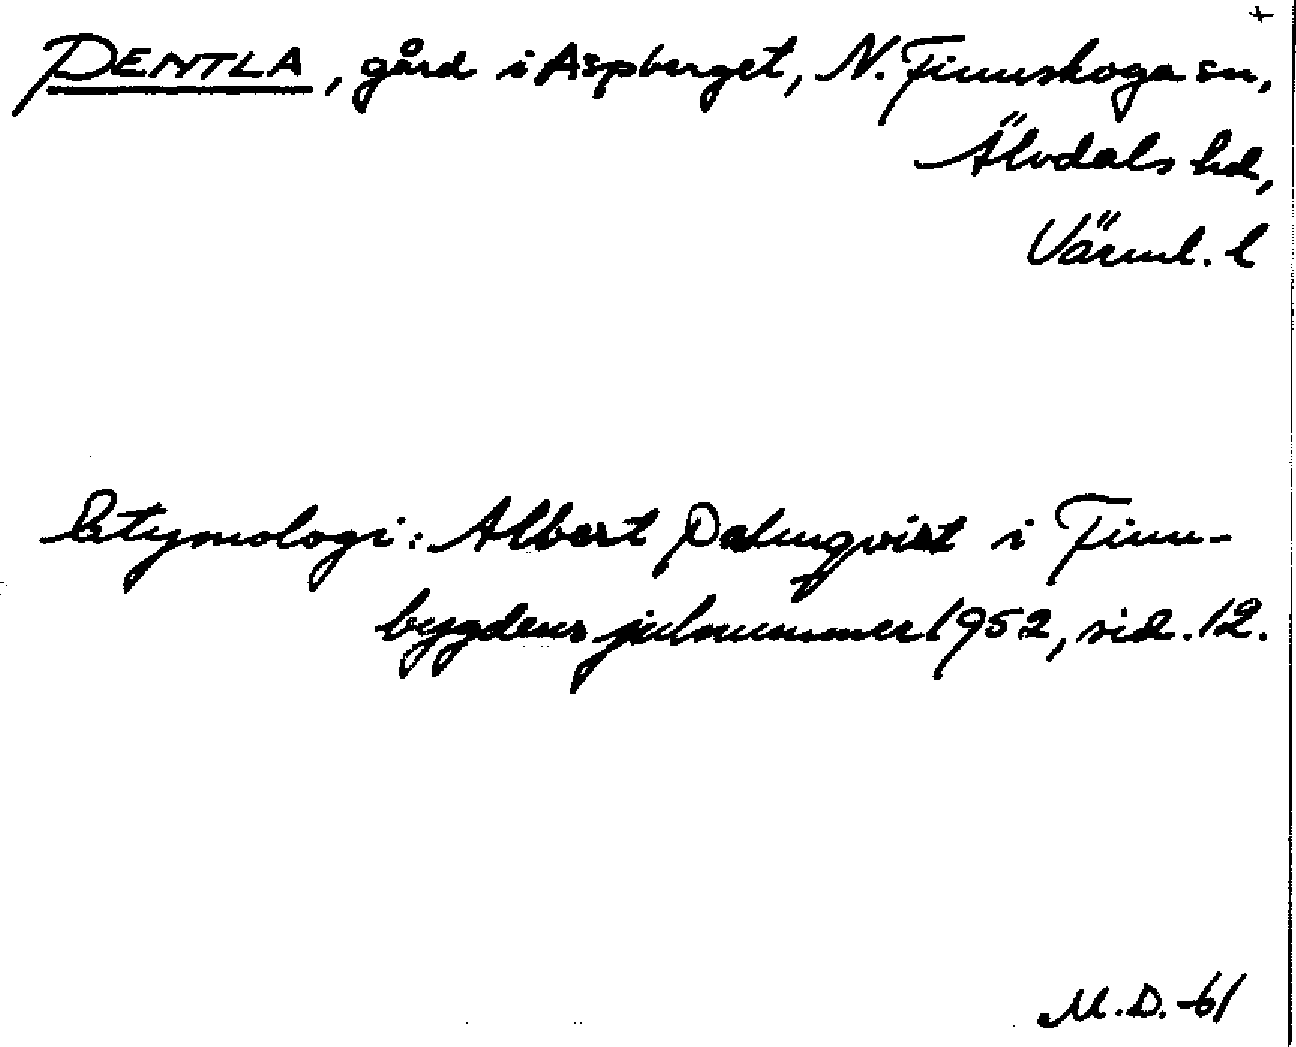 PENTLA, gård i Aspberget, N. Finnskoga sn,
Älvdals hd,
Värml. l
Etymologi: Albert Palmqvist i Finn-
bygdens julnummer 1952, sid. 12.
M.D. -61